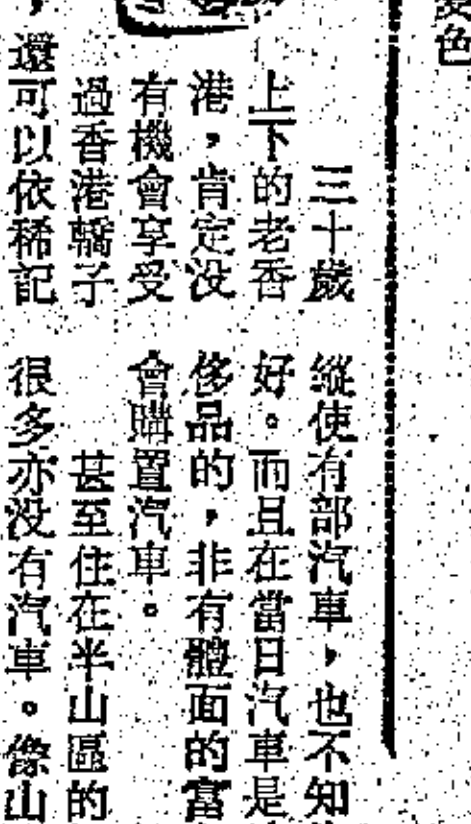 色
三十歲
上下的老香
港，肯定没
有機會享受
過香港轎子
，還可以依稀記
縱使有部汽車，也不知
好。而且在當日汽車是
侈品的，非有體面的富
會購置汽車。
甚至住在半山區的
很多亦没有汽車。像山